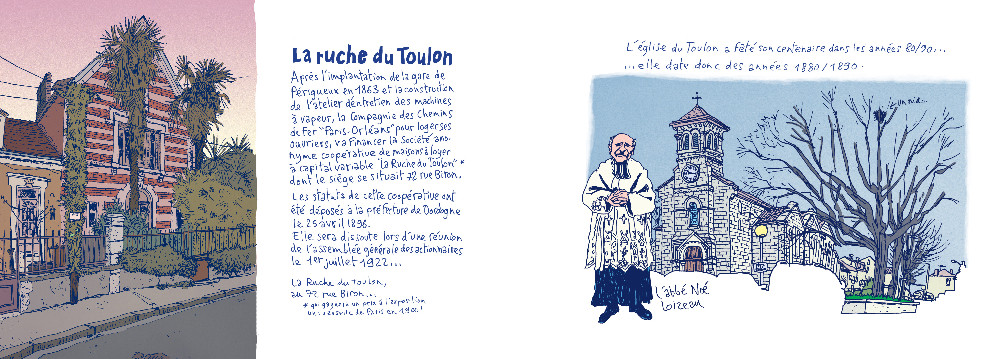 La ruche du Toulon
Après l'implantation de la gare de
Périgueux en 1863 et la construction
de l'atelier d'entretien des machines
à vapeur, la Compagnie des Chemins
de Fer "Paris. Orléans" pour loger ses
ouvriers, va financer la Société ano-
nyme coopérative de maisons à loyer
à capital variable "la Ruche du Toulon" *
dont le siège se situait 72 rue Biron.
Les statuts de cette coopérative ont
été déposés à la préfecture de Dordogne
le 25 avril 1896.
Elle sera dissoute lors d'une réunion
de l'assemblée générale des actionnaires
le 1er juillet 1922...
La Ruche du Toulon,
au 72 rue Biron...
* qui gagnera un prix à l'exposition
universelle de Paris en 1900!
L'église du Toulon a fêté son centenaire dans les années 80/90...
...elle date donc des années 1880/1890.
un nid...
L'abbé Noé
Loizeau